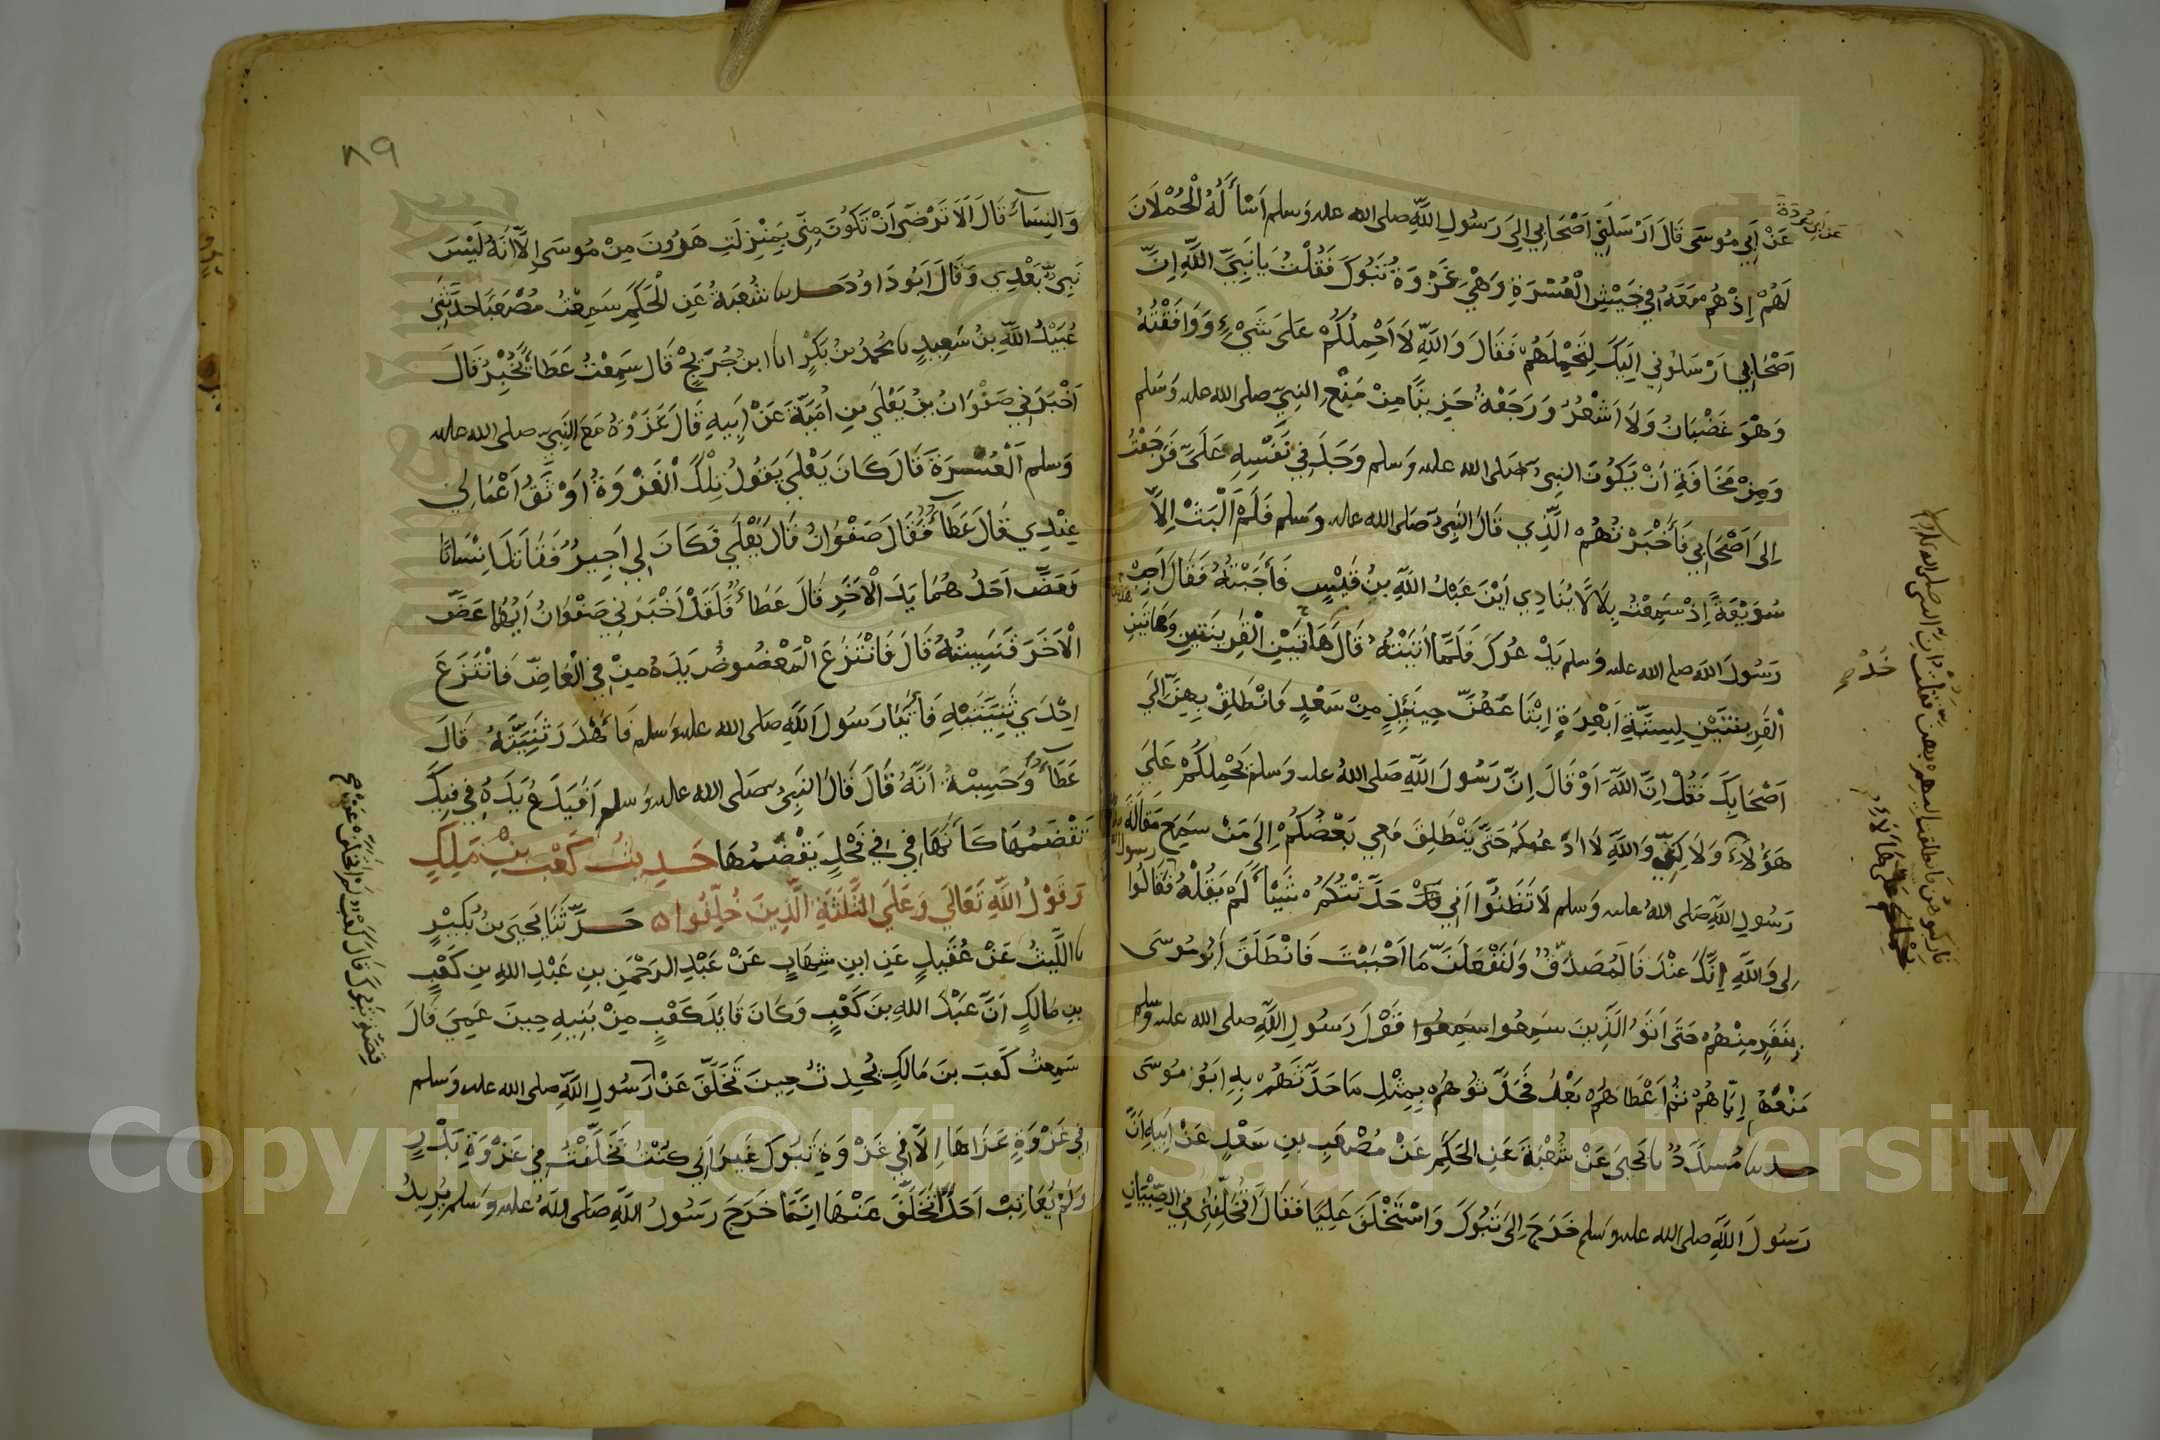 عن ابي بردة
عَنْ اَبِي مُوسَى قَالَ اَرْسَلَنِي اَصْحَابِي اِلَى رَسُولِ اللَّهِ صلى الله عليه وسلم اَسْأَلُهُ الْحُمْلَانَ
لَهُمْ اِذْ هُمْ مَعَهُ فِي جَيْشِ الْعُسْرَةِ وَهِيَ غَزْوَةُ تَبُوكَ فَقُلْتُ يَا نَبِيَّ اللَّهِ اِنَّ
اَصْحَابِي اَرْسَلُونِي اِلَيْكَ لِتَحْمِلَهُمْ فَقَالَ وَاللَّهِ لَا اَحْمِلُكُمْ عَلَى شَيْءٍ وَوَافَقْتُهُ
وَهُوَ غَضْبَانُ وَلَا اَشْعُرُ وَرَجَعْتُ حَزِينًا مِنْ مَنْعِ النبيّ صلى الله عليه وسلم
وَمِنْ مَخَافَةِ اَنْ يَكُونَ النبيُّ صلى الله عليه وسلم وَجَدَ فِي نَفْسِهِ عَلَيَّ فَرَجَعْتُ
اِلَى اَصْحَابِي فَأَخْبَرْتُهُمُ الَّذِي قَالَ النَّبِيُّ صلى الله عليه وسلم فَلَمْ اَلْبَثْ اِلَّا
سُوَيْعَةً اِذْ سَمِعْتُ بِلَالًا يُنَادِي اَيْنَ عَبْدُ اللَّهِ بنُ قَيْسٍ فَأَجَبْتُهُ فَقَالَ اَجِبْ
رَسُولَ الله صلى الله عليه وسلم يَدْعُوكَ فَلَمَّا اَتَيْتُهُ قَالَ هَاتَيْنِ الْقَرِينَتَيْنِ وَهَاتَيْنِ
الْقَرِينَتَيْنِ لِسِتَّةِ اَبْعِرَةٍ ابْتَاعَهُنَّ حِينَئِذٍ مِنْ سَعْدٍ فَانْطَلِقْ بِهِنَّ اِلَى
اَصْحَابِكَ فَقُلْ اِنَّ اللَّهَ اَوْ قَالَ اِنَّ رَسُولَ اللَّهِ صلى الله عليه وسلم يَحْمِلُكُمْ عَلَى
هَؤُلَاءِ وَلَكِنِّي وَاللَّهِ لَا اَدَعُكُمْ حَتَّى يَنْطَلِقَ مَعِي بَعْضُكُمْ اِلَى مَنْ سَمِعَ مَقَالَةَ
رَسُولِ اللَّهِ صلى الله عليه وسلم لَا تَظُنُّوا اَنِّي حَدَّثْتُكُمْ شَيْئًا لَمْ يَقُلْهُ فَقَالُوا
لِي وَاللَّهِ اِنَّكَ عِنْدَنَا لَمُصَدَّقٌ وَلَنَفْعَلَنَّ مَا اَحْبَبْتَ فَانْطَلَقَ اَبُو مُوسَى
بِنَفَرٍ مِنْهُمْ حَتَّى اَتَوُا الَّذِينَ سَمِعُوا سمعوا قَوْلَ رَسُولِ اللَّهِ صلى الله عليه وسلم
مَنْعَهُ اِيَّاهُمْ ثُمَّ اَعْطَاهُمْ بَعْدُ فَحَدَّثُوهُمْ بِمِثْلِ مَا حَدَّثَهُمْ بِهِ اَبُو مُوسَى
حدثنا مُسَدَّدٌ نا يَحْيَى عَنْ شُعْبَةَ عَنِ الحَكَمِ عَنْ مُصْعَبِ بنِ سَعْدٍ عَنْ اَبِيهِ اَنَّ
رَسُولَ اللَّهِ صلى الله عليه وسلم خَرَجَ اِلَى تَبُوكَ وَاسْتَخْلَفَ عَلِيًّا فَقَالَ اَتُخَلِّفُنِي فِي الصِّبْيَانِ
خُذْ
يحملكم على هاؤلاء
فاركبوهن فانطلقت اليهم بهن فقلت ان النبي صلى الله عليه وسلم
٨٩
وَالنِّسَاءِ قَالَ اَلَا تَرْضَى اَنْ تَكُونَ مِنِّي بِمَنْزِلَةِ هَرُونَ مِنْ مُوسَى اِلَّا اَنَّهُ لَيْسَ
نَبِيٌّ بَعْدِي وَقَالَ اَبُو دَاوُدَ حدثنا شُعْبَةُ عَنِ الْحَكَمِ سَمِعْتُ مُصْعَبًا حَدَّثَنِي
عُبَيْدُ اللَّهِ بنُ سَعِيدٍ نا مُحَمَّدُ بنُ بَكْرٍ انا ابنُ جُرَيْجٍ قَالَ سَمِعْتُ عَطَاءً يُخْبِرُ قَالَ
اَخْبَرَنِي صَفْوَانُ بنُ يَعْلَى بنِ اُمَيَّةَ عَنْ اَبِيهِ قَالَ غَزَوْتُ مَعَ النَّبِيِّ صلى الله عليه
وسلم الْعُسْرَةَ قَالَ كَانَ يَعْلَى يَقُولُ تِلْكَ الْغَزْوَةُ اَوْثَقُ اَعْمَالِي
عِنْدِي قَالَ عَطَاءٌ فَقَالَ صَفْوَانُ قَالَ يَعْلَى فَكَانَ لِي اَجِيرٌ فَقَاتَلَ اِنْسَانًا
فَعَضَّ اَحَدُهُمَا يَدَ الْآخَرِ قَالَ عَطَاءٌ فَلَقَدْ اَخْبَرَنِي صَفْوَانُ اَيُّهُمَا عَضَّ
الْآخَرَ فَنَسِيتُهُ قَالَ فَانْتَزَعَ الْمَعْضُوضُ يَدَهُ مِنْ فِي الْعَاضِّ فَانْتَزَعَ
اِحْدَى ثَنِيَّتَيْهِ فَأَتَيَا رَسُولَ اللَّهِ صلى الله عليه وسلم فَأَهْدَرَ ثَنِيَّتَهُ قَالَ
عَطَاءٌ وَحَسِبْتُ اَنَّهُ قَالَ قَالَ النَّبِيُّ صلى الله عليه وسلم اَفَيَدَعُ يَدَهُ فِي فِيكَ
تَقْضَمُهَا كَأَنَّهَا فِي فِي فَحْلٍ يَقْضَمُهَا حَدِيثُ كَعْبِ بْنِ مَلِكٍ
وَقَوْلُ اللَّهِ تَعَالَى وَعَلَى الثَّلَثَةِ الَّذِينَ خُلِّفُوا حَدَّثَنَا يَحْيَى بنُ بُكَيْرٍ
نا اللَّيْثُ عَنْ عُقَيْلٍ عَنِ ابنِ شِهَابٍ عَنْ عَبْدِ الرَّحْمَنِ بنِ عَبْدِ اللهِ بنِ كَعْبِ
بنِ مَالِكٍ اَنَّ عَبْدَ اللهِ بنَ كَعْبٍ وَكَانَ قَائِدَ كَعْبٍ مِنْ بَنِيهِ حِينَ عَمِيَ قَالَ
سَمِعْتُ كَعْبَ بنَ مَالِكٍ يُحَدِّثُ حِينَ تَخَلَّفَ عَنْ رَسُولِ اللَّهِ صلى الله عليه وسلم
فِي غَزْوَةٍ غَزَاهَا اِلَّا فِي غَزْوَةِ تَبُوكَ غَيْرَ اَنِّي كُنْتُ تَخَلَّفْتُ فِي غَزْوَةِ بَدْرٍ
وَلَمْ يُعَاتِبْ اَحَدًا تَخَلَّفَ عَنْهَا اِنَّمَا خَرَجَ رَسُولُ اللَّهِ صلى الله عليه وسلم يُرِيدُ
قصة تبوك قال كعب لم اتخلف عن